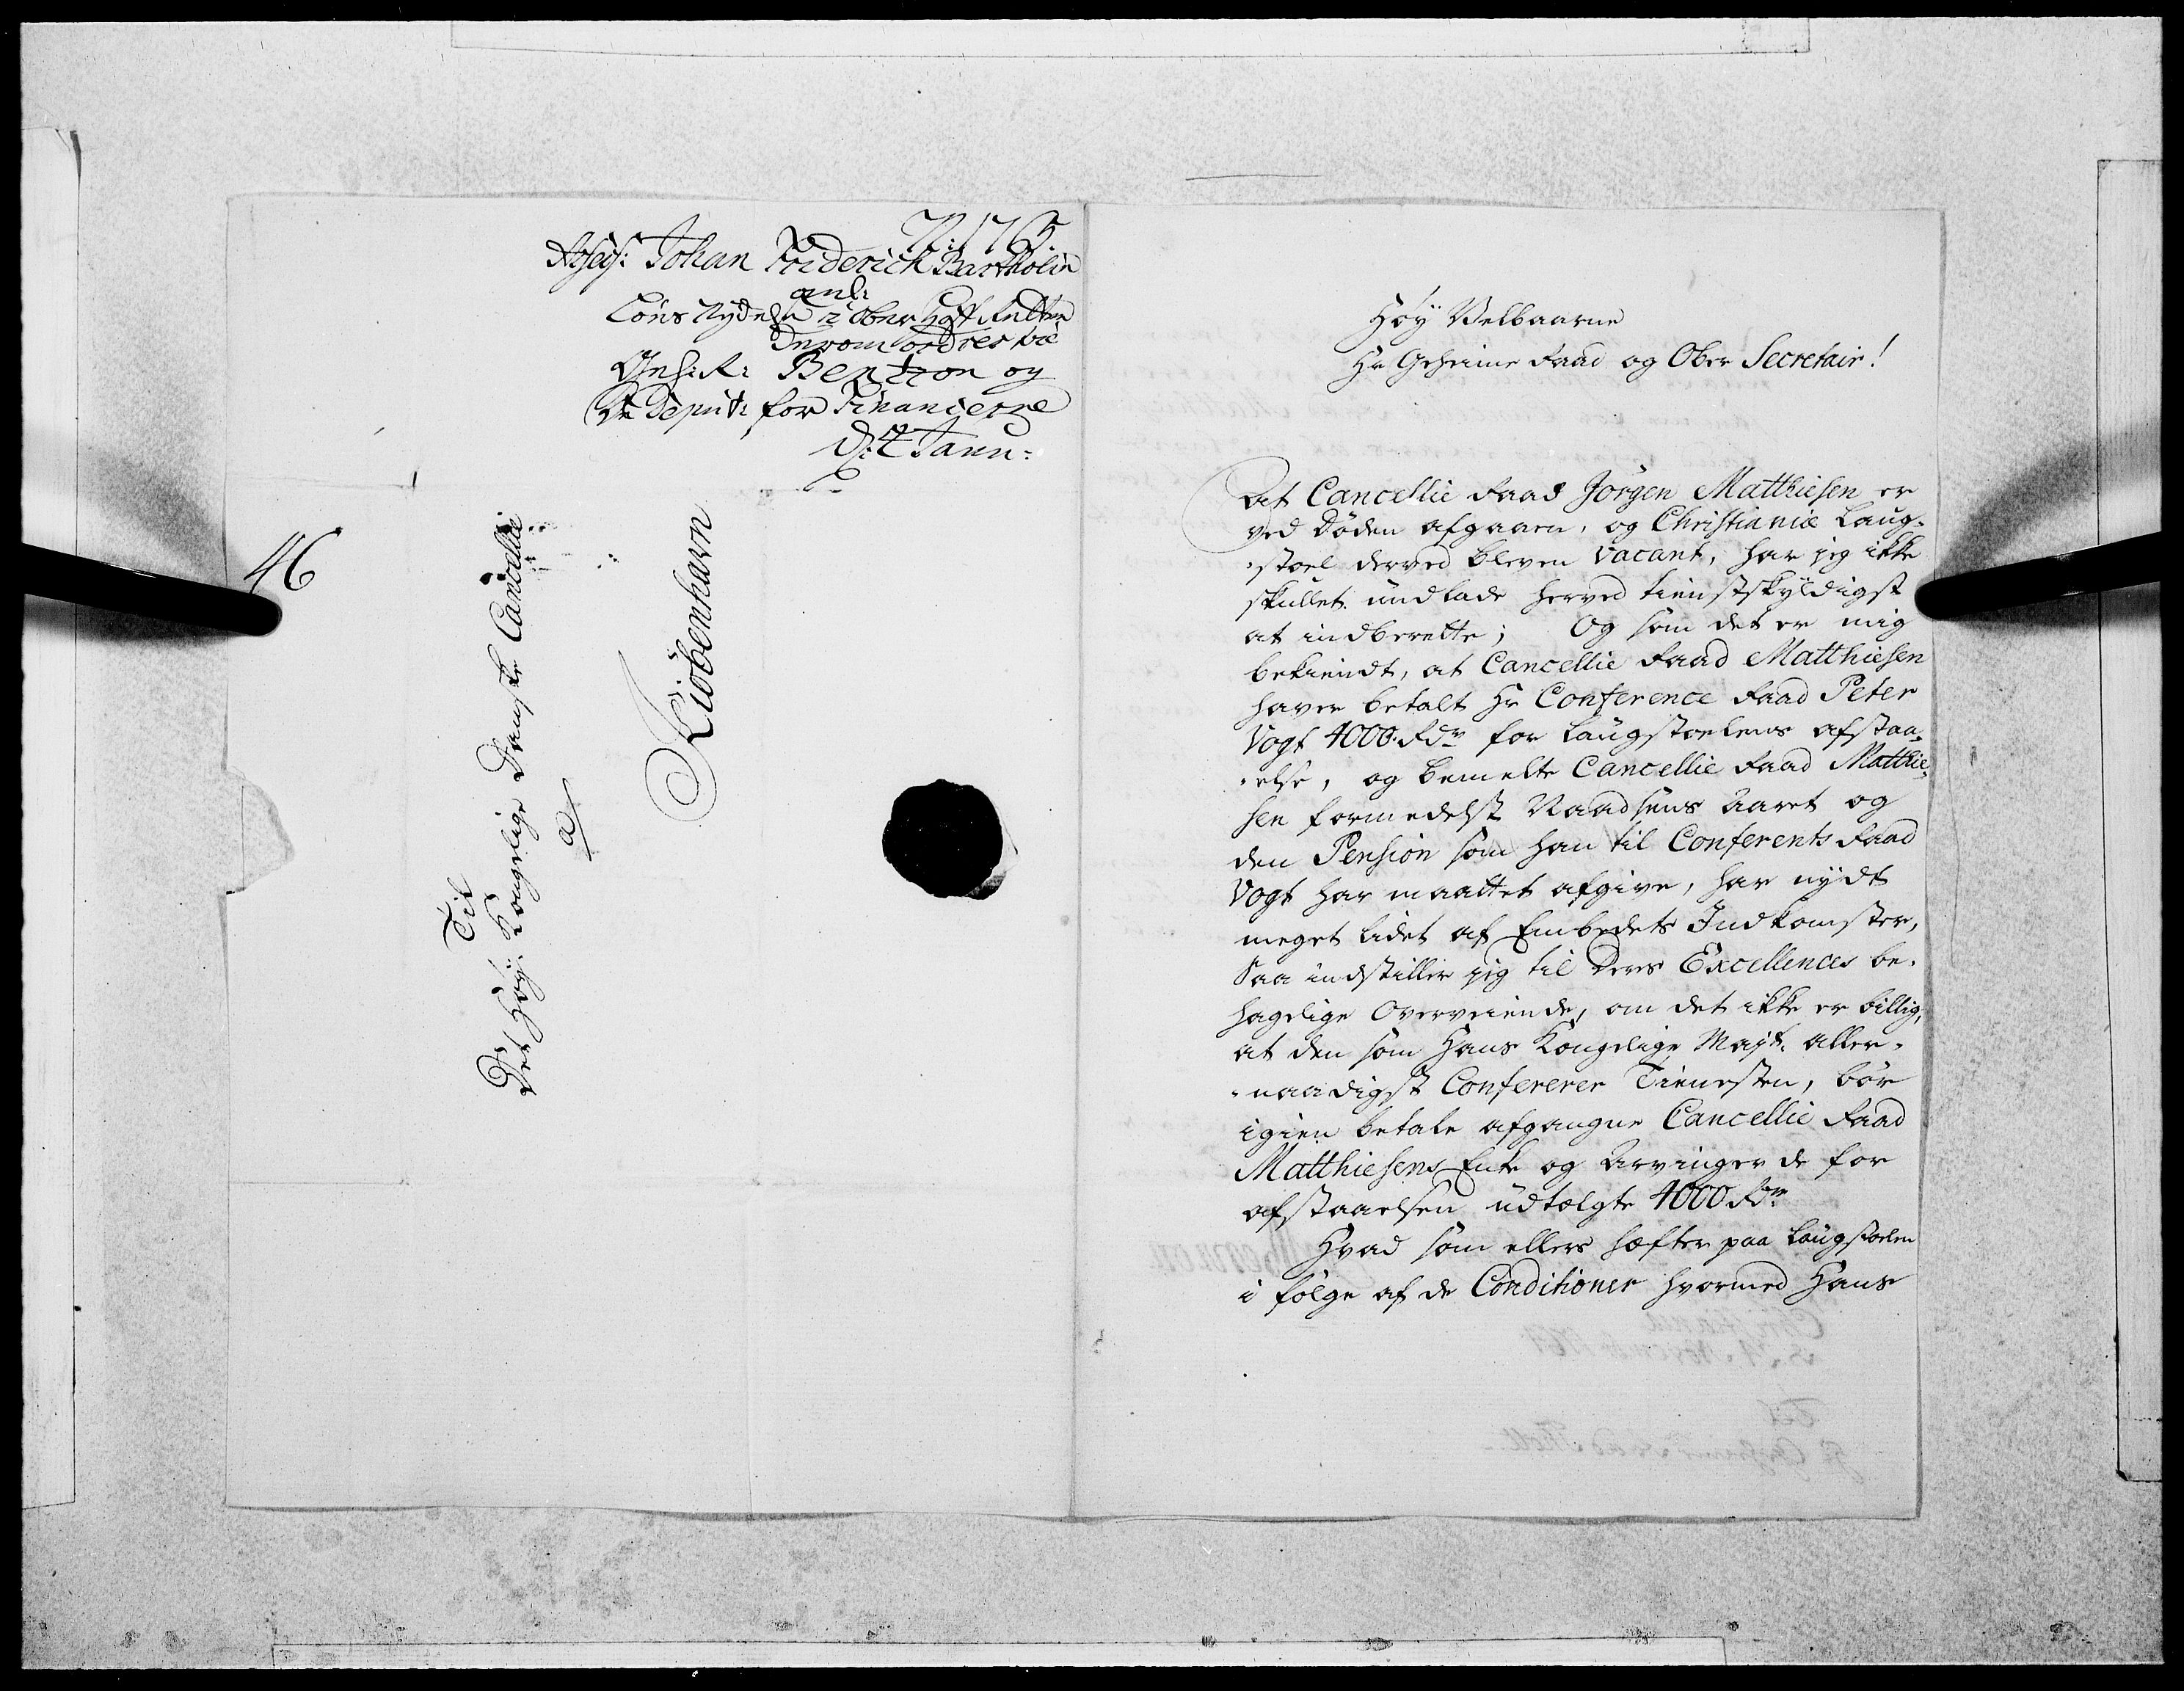 1765
Assess: Johan Friderich Bartholin
anl:
Løns Nydelse i Ober Hoff Retten
Derom ordres til
Geh: R: Bentzon og
De Deput: for Financerne
D: 4 Janu:
46
Til
Det Høy. Kongelige Danske Cancellie
a
Kiöbenhavn
Høy Velbaarne
Hr Geheime Raad og Ober Secretair!
At Cancellie Raad Jörgen Matthiesen er
ved Døden afgaaen, og Christianiæ Laug-
stoel derved bleven vacant, har jeg ikke
skullet undlade herved tienstskyldigst
at indberette; Og som det er mig
bekiendt, at Cancellie Raad Matthiesen
haver betalt Hr Conference Raad Peter
Vogt 4000 Rdr for Laugstoelens afstaa-
else, og bemelte Cancellie Raad Matthie-
sen formedelst Naadsens Aaret og
den Pension som han til Conferents Raad
Vogt har maattet afgive, har nydt
meget lidet af Embedets Indkomster,
Saa indstiller jeg til Deres Excellences be-
hagelige Overveiende, om det ikke er billig,
at den som Hans Kongelige Mayt: aller-
naadigst Confererer Tienesten, bør
igien betale afgangne Cancellie Raad
Matthiesens Enke og Arvinger de for
afstaaelsen udtælgte 4000 Rdr
Hvad som ellers hæfter paa Laugstoelen
i følge af de Conditioner hvormed Hans